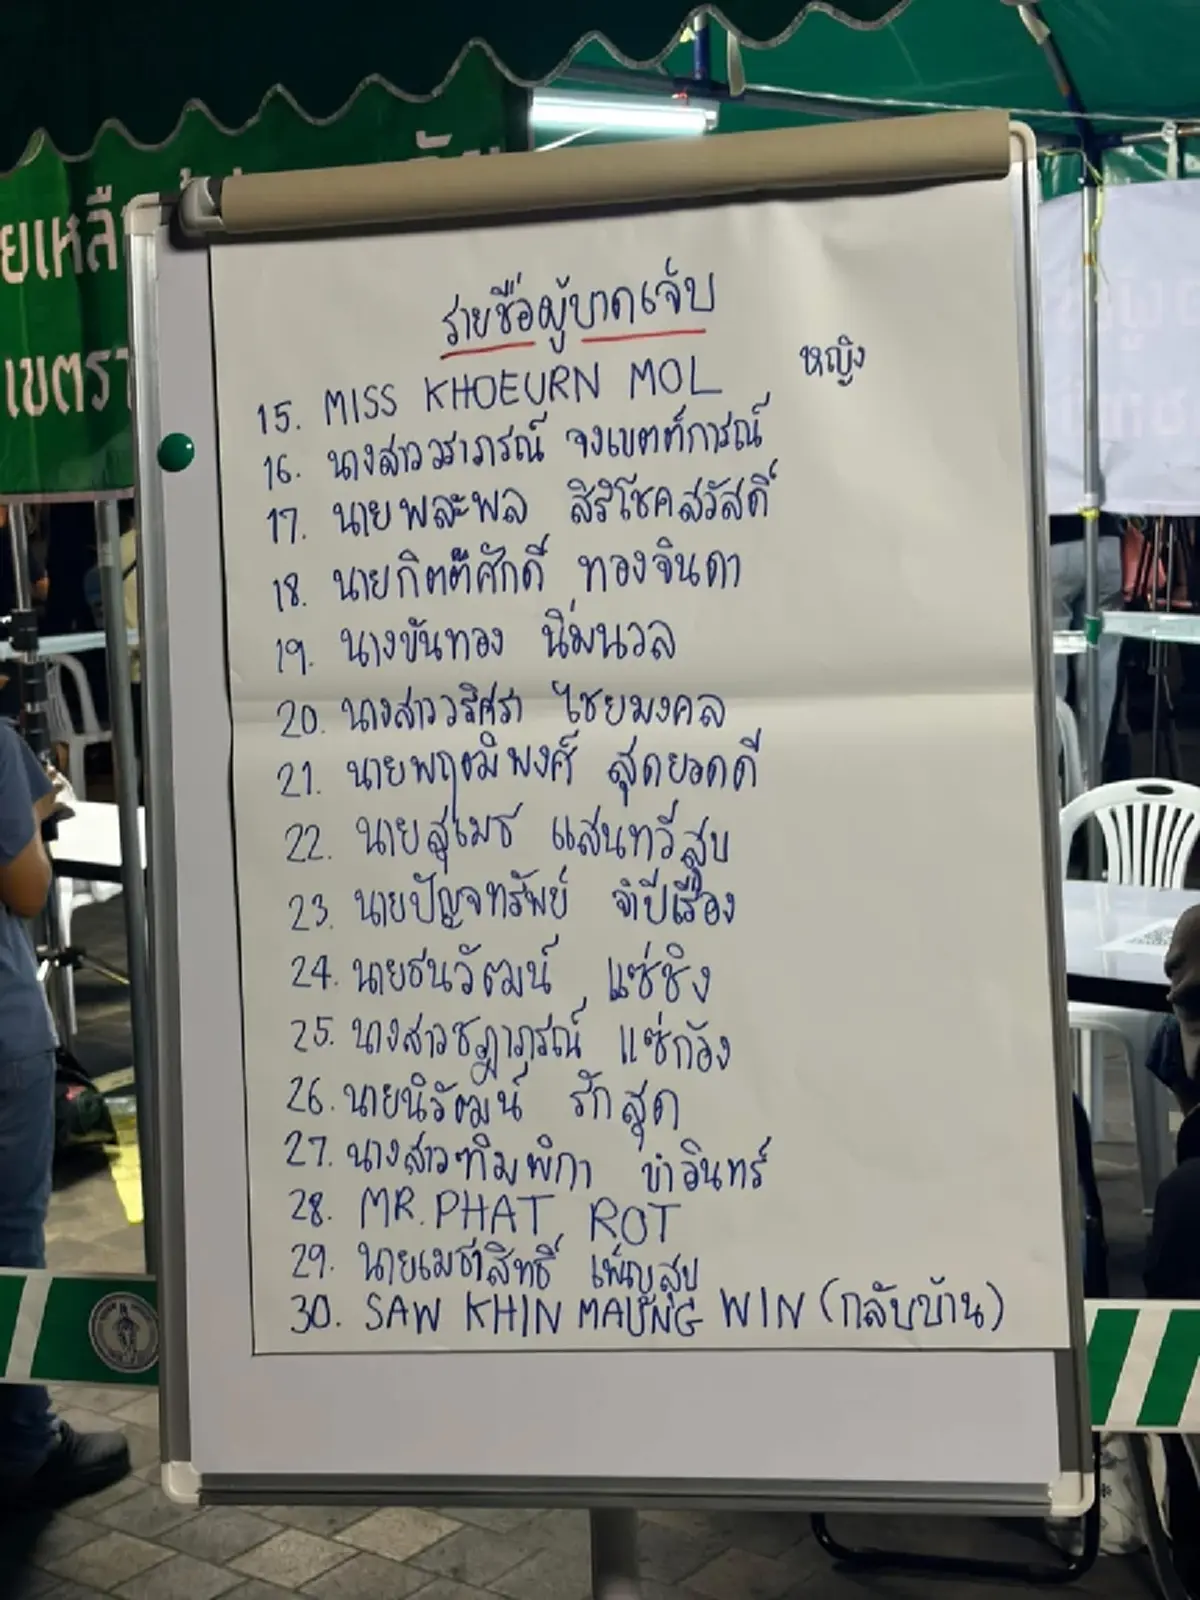 ยเหลือ
เขตรา
รายชื่อผู้บาดเจ็บ
15. MISS KHOEURN MOL หญิง
16. นางสาววราภรณ์ จงเขตต์การณ์
17. นายพละพล สิริโชคสวัสดิ์
18. นายกิตติศักดิ์ ทองจินดา
19. นางขันทอง นิ่มนวล
20. นางสาววริศรา ไชยมงคล
21. นายพฤฒิพงศ์ สุดยอดดี
22. นายสุเมธ แสนทวีสุข
23. นายปัญจทรัพย์ จำปีเรือง
24. นายธนวัฒน์ แซ่ซิง
25. นางสาวชฎาภรณ์ แซ่ก๊อง
26. นายนิรัฒน์ รักสุด
27. นางสาวทิมพิกา ขำอินทร์
28. MR. PHAT ROT
29. นายเมธาสิทธิ์ เพ็ญสุข
30. SAW KHIN MAUNG WIN (กลับบ้าน)